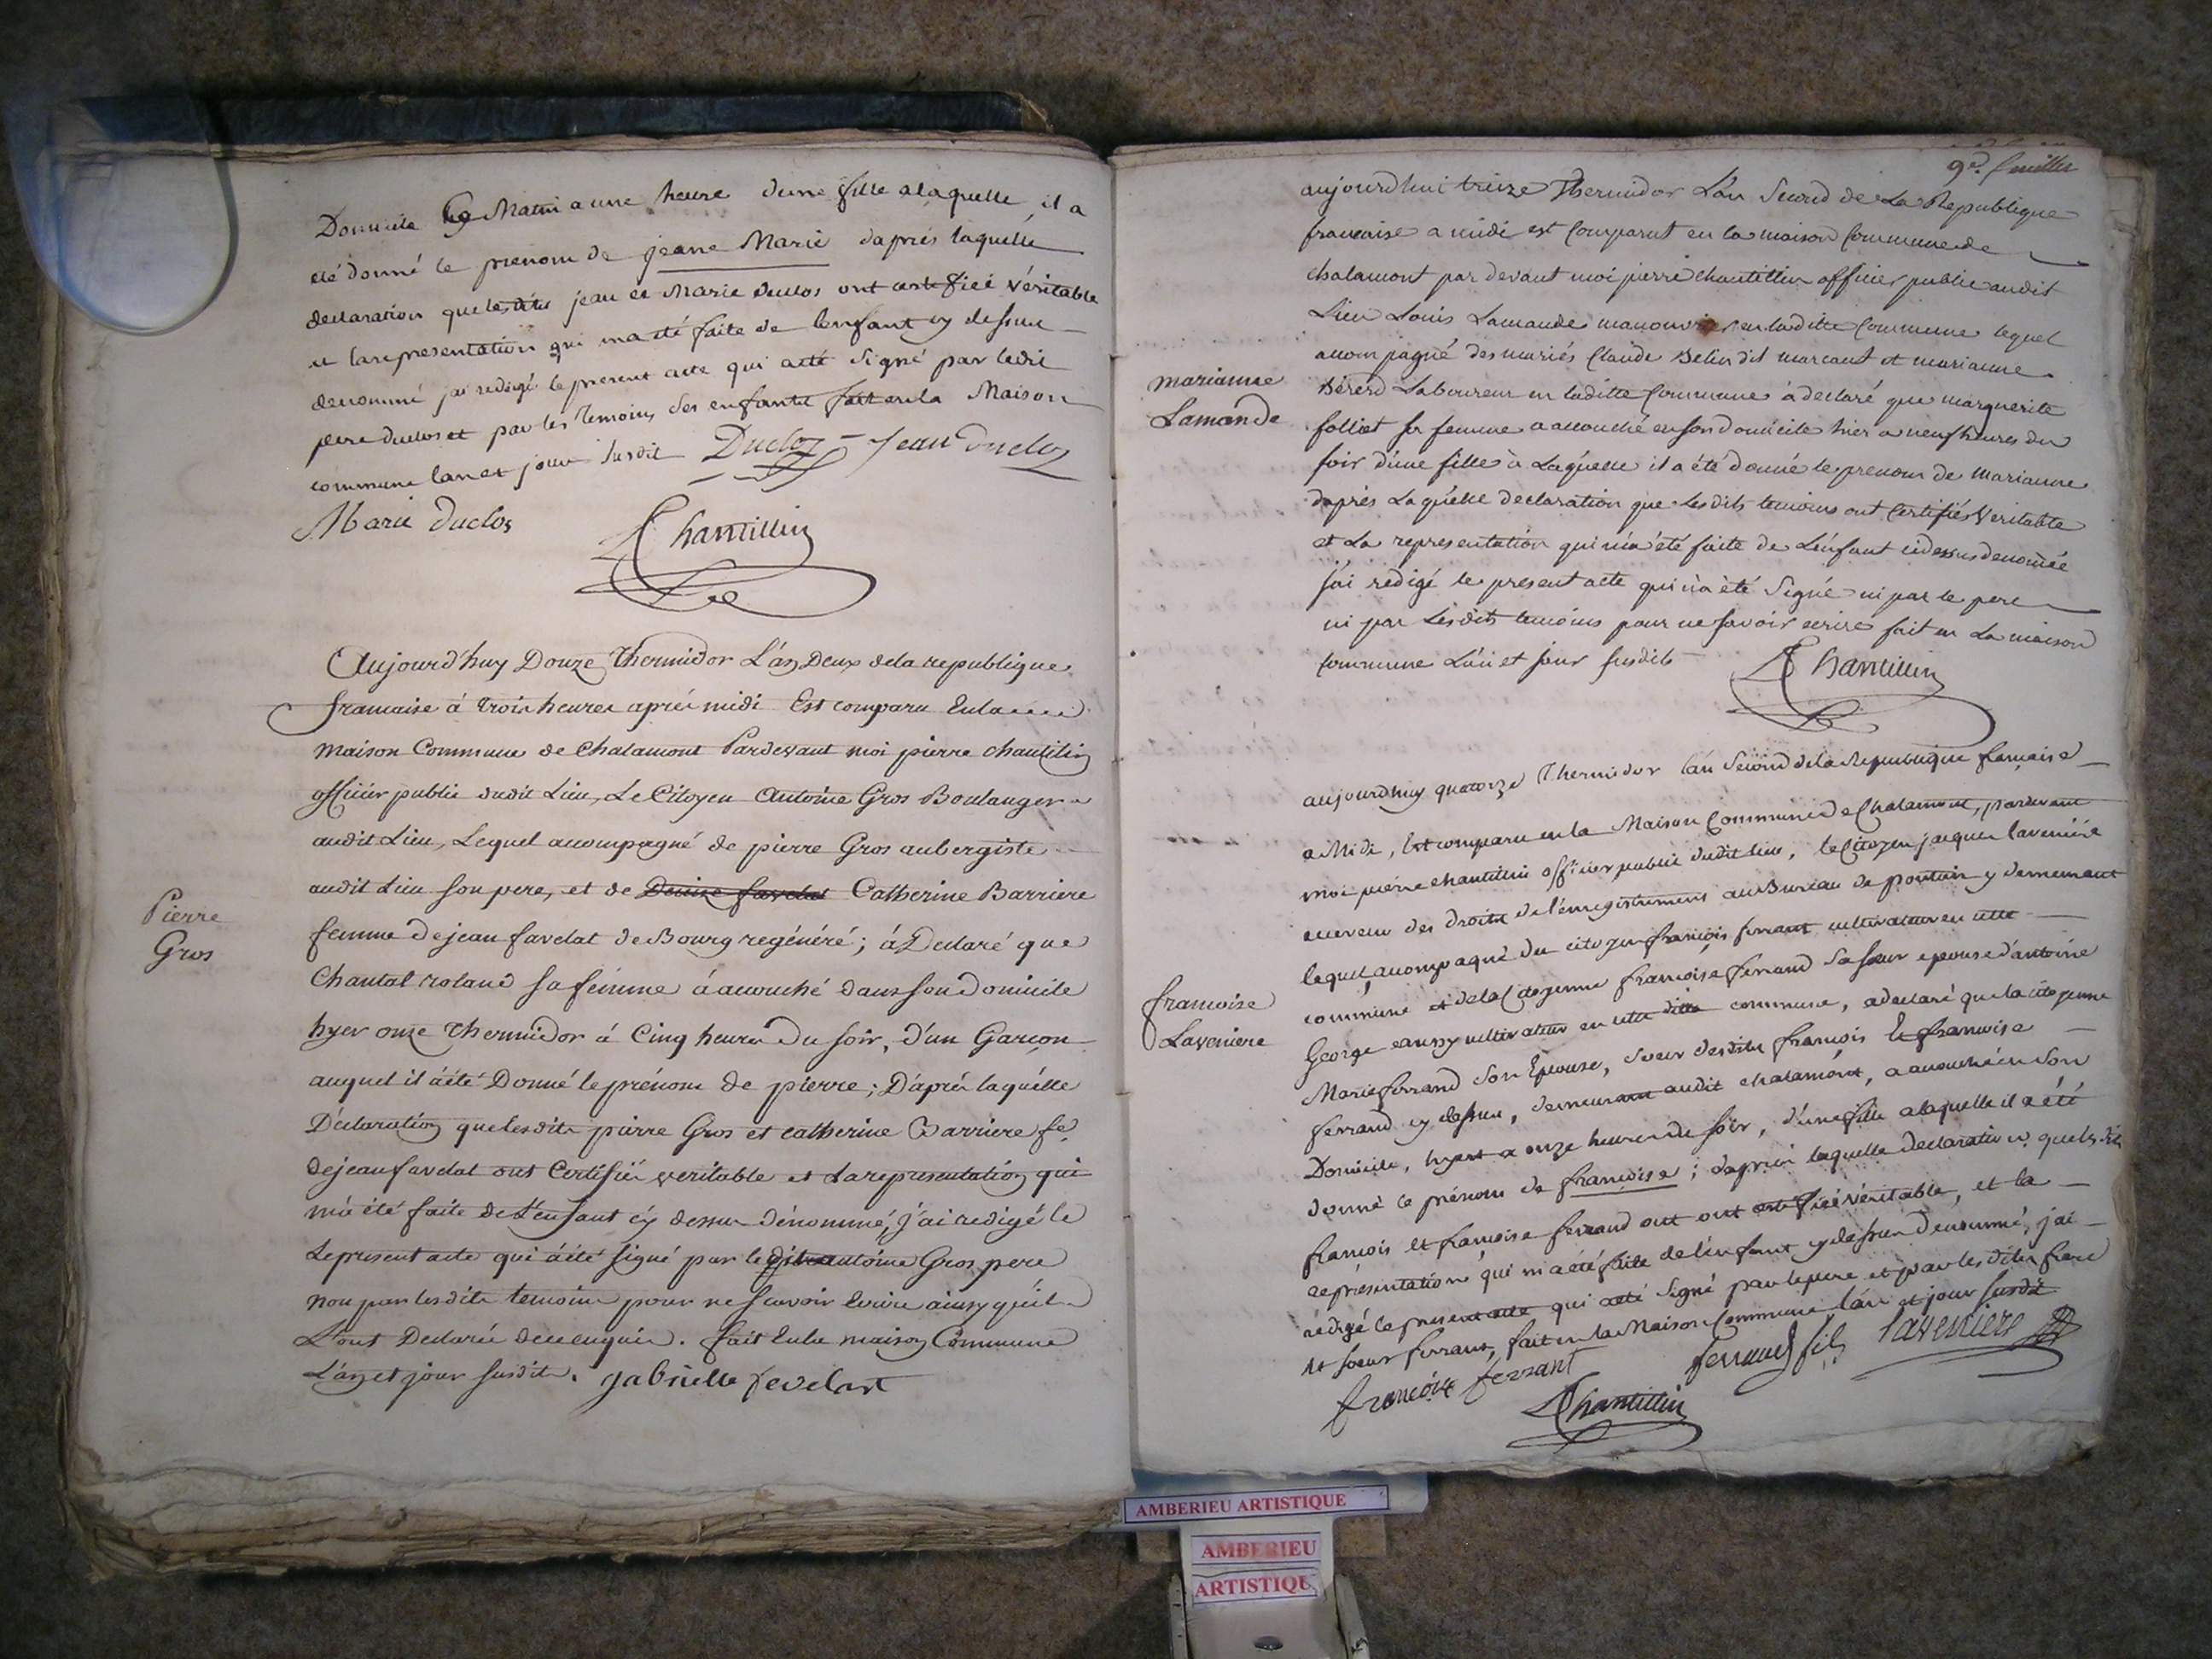 Domicile ce Matin a une heure dune fille alaquelle il a
eté donné le prenom de jeane Marie daprés laquelle
declaration que lesdits jean et Marie duclos ont certifiée véritable
et larepresentation qui ma eté faite de lenfant cy dessus
denommé jai redigé le present acte qui aeté signé par ledit
pere duclos et par les temoins ses enfants fait en la Maison
commune lan et jour susdit Ducloz Jean Ducloz
Marie Duclos Chantillin
Aujourd'huy Douze Thermidor L'an Deux de la republique
francaise à trois heures aprés midi Est comparu En la
maison Commune de Chalamont Pardevant moi pierre chantilin
officier public dudit Lieu, Le Citoyen Antoine Gros Boulanger
audit Lieu, Lequel accompagné de pierre Gros aubergiste
audit Lieu son pere, et de Catherine Barriere
femme de jean favelat de Bourg regénéré ; à Declaré que
Pierre
Gros
Chantal roland sa femme à accouché dans son Domicile
hyer onze Thermidor à Cinq heures Du soir, D'un Garcon
auquel il àété Donné le prénom de pierre ; D'aprés laquélle
Déclaration que lesdits pierre Gros et catherine Barriere fe
de jean favelat ont Certifiée veritable et La representation qui
m'a été faite de L'enfant cy dessus dénommé, j'ai redigé le
Le present acte qui àété signé par le antoine Gros pere
non par lesdits temoins pour ne scavoir Ecrire ainsy quil
L'ont Declarée de ce enquis. fait En la maison Commune
L'an et jour susdits. gabrielle fevelat
9e feuillet
aujourdhui treize Thermidor L'an Second de La Republique
francaise a midi est Comparut en la maison Commune de
chalamont par devant moi pierre chantillin officier public audit
Lieu Louis Lamande manouvrier en laditte Commune lequel
accompagné des mariés Claude Belin dit marcaut et marianne
marianne
Lamande
Bérerd Laboureur en laditte Commune à declaré que marguerite
folliet sa femme a accouché en son domicile hier a neuf heures du
soir d'une fille à Laquelle il a été donné le prenom de Marianne
daprés Laquelle declaration que Lesdits temoins ont Certifiés Veritable
et La representation qui m'a été faite de Lénfant cidessus denomée
j'ai redigé le present acte qui n'a été Signé ni par le pere
ni par Lesdits temoins pour ne savoir ecrire fait en La maison
Commune L'an et jour susdits Chantillin
aujourdhuy quatorze Thermidor lan Second de la Republique francaise
a Midi, Est comparu en la Maison Commune de Chalamont, pardevant
moi pierre chantillin officier public dudit lieu, le Citoyen jacques laveniere
receveur des droits de l'énregistrement au Bureau de pontain y demeurant
lequel accompagné du citoyen françois ferrant cultivateur en cette
francoise
Laveniere
commune et de la Citoyenne francoise ferrand sa sœur epouse d'antoine
George aussy cultivateur en cette ditte commune, a declaré que la citoyenne
Marie ferrand son Epouse, sœur desdits francois et francoise
ferrand cy dessus, demeurant audit chalamont, a accouché en son
Domicile, hyer a onze heures du soir, d'une fille alaquelle il a été
donné le prénom de francoise ; daprés laquelle declaration que lesdits
francois et francoise ferrand ont ont certifiée véritable, et la
représentation qui m'a été faite de lénfant cy dessus denommé, j'ai
redigé le present acte qui aeté signé par le pere et par lesdits frere
et sœur ferrant, fait en la Maison Commune lan et jour susdit
francoise ferrant ferrand fils laveniere
Chantillin
AMBERIEU ARTISTIQUE
AMBERIEU
ARTISTIQU